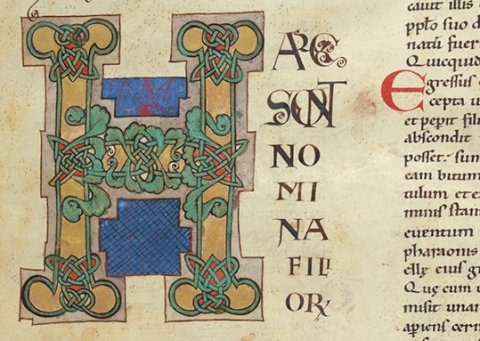 H
AEC
SUNT
NO
MI
NA
FILI
ORꝜ
cauit illis
pplo suo d
natū fuer
Quicquid
Egressus
cepta u
et pepit fili
abscondit
posset. sum
eam bitum
tulum et e
minis stam
euentum
pharaonis
ellę eius g
Quę cum u
misit una
aperiens cern